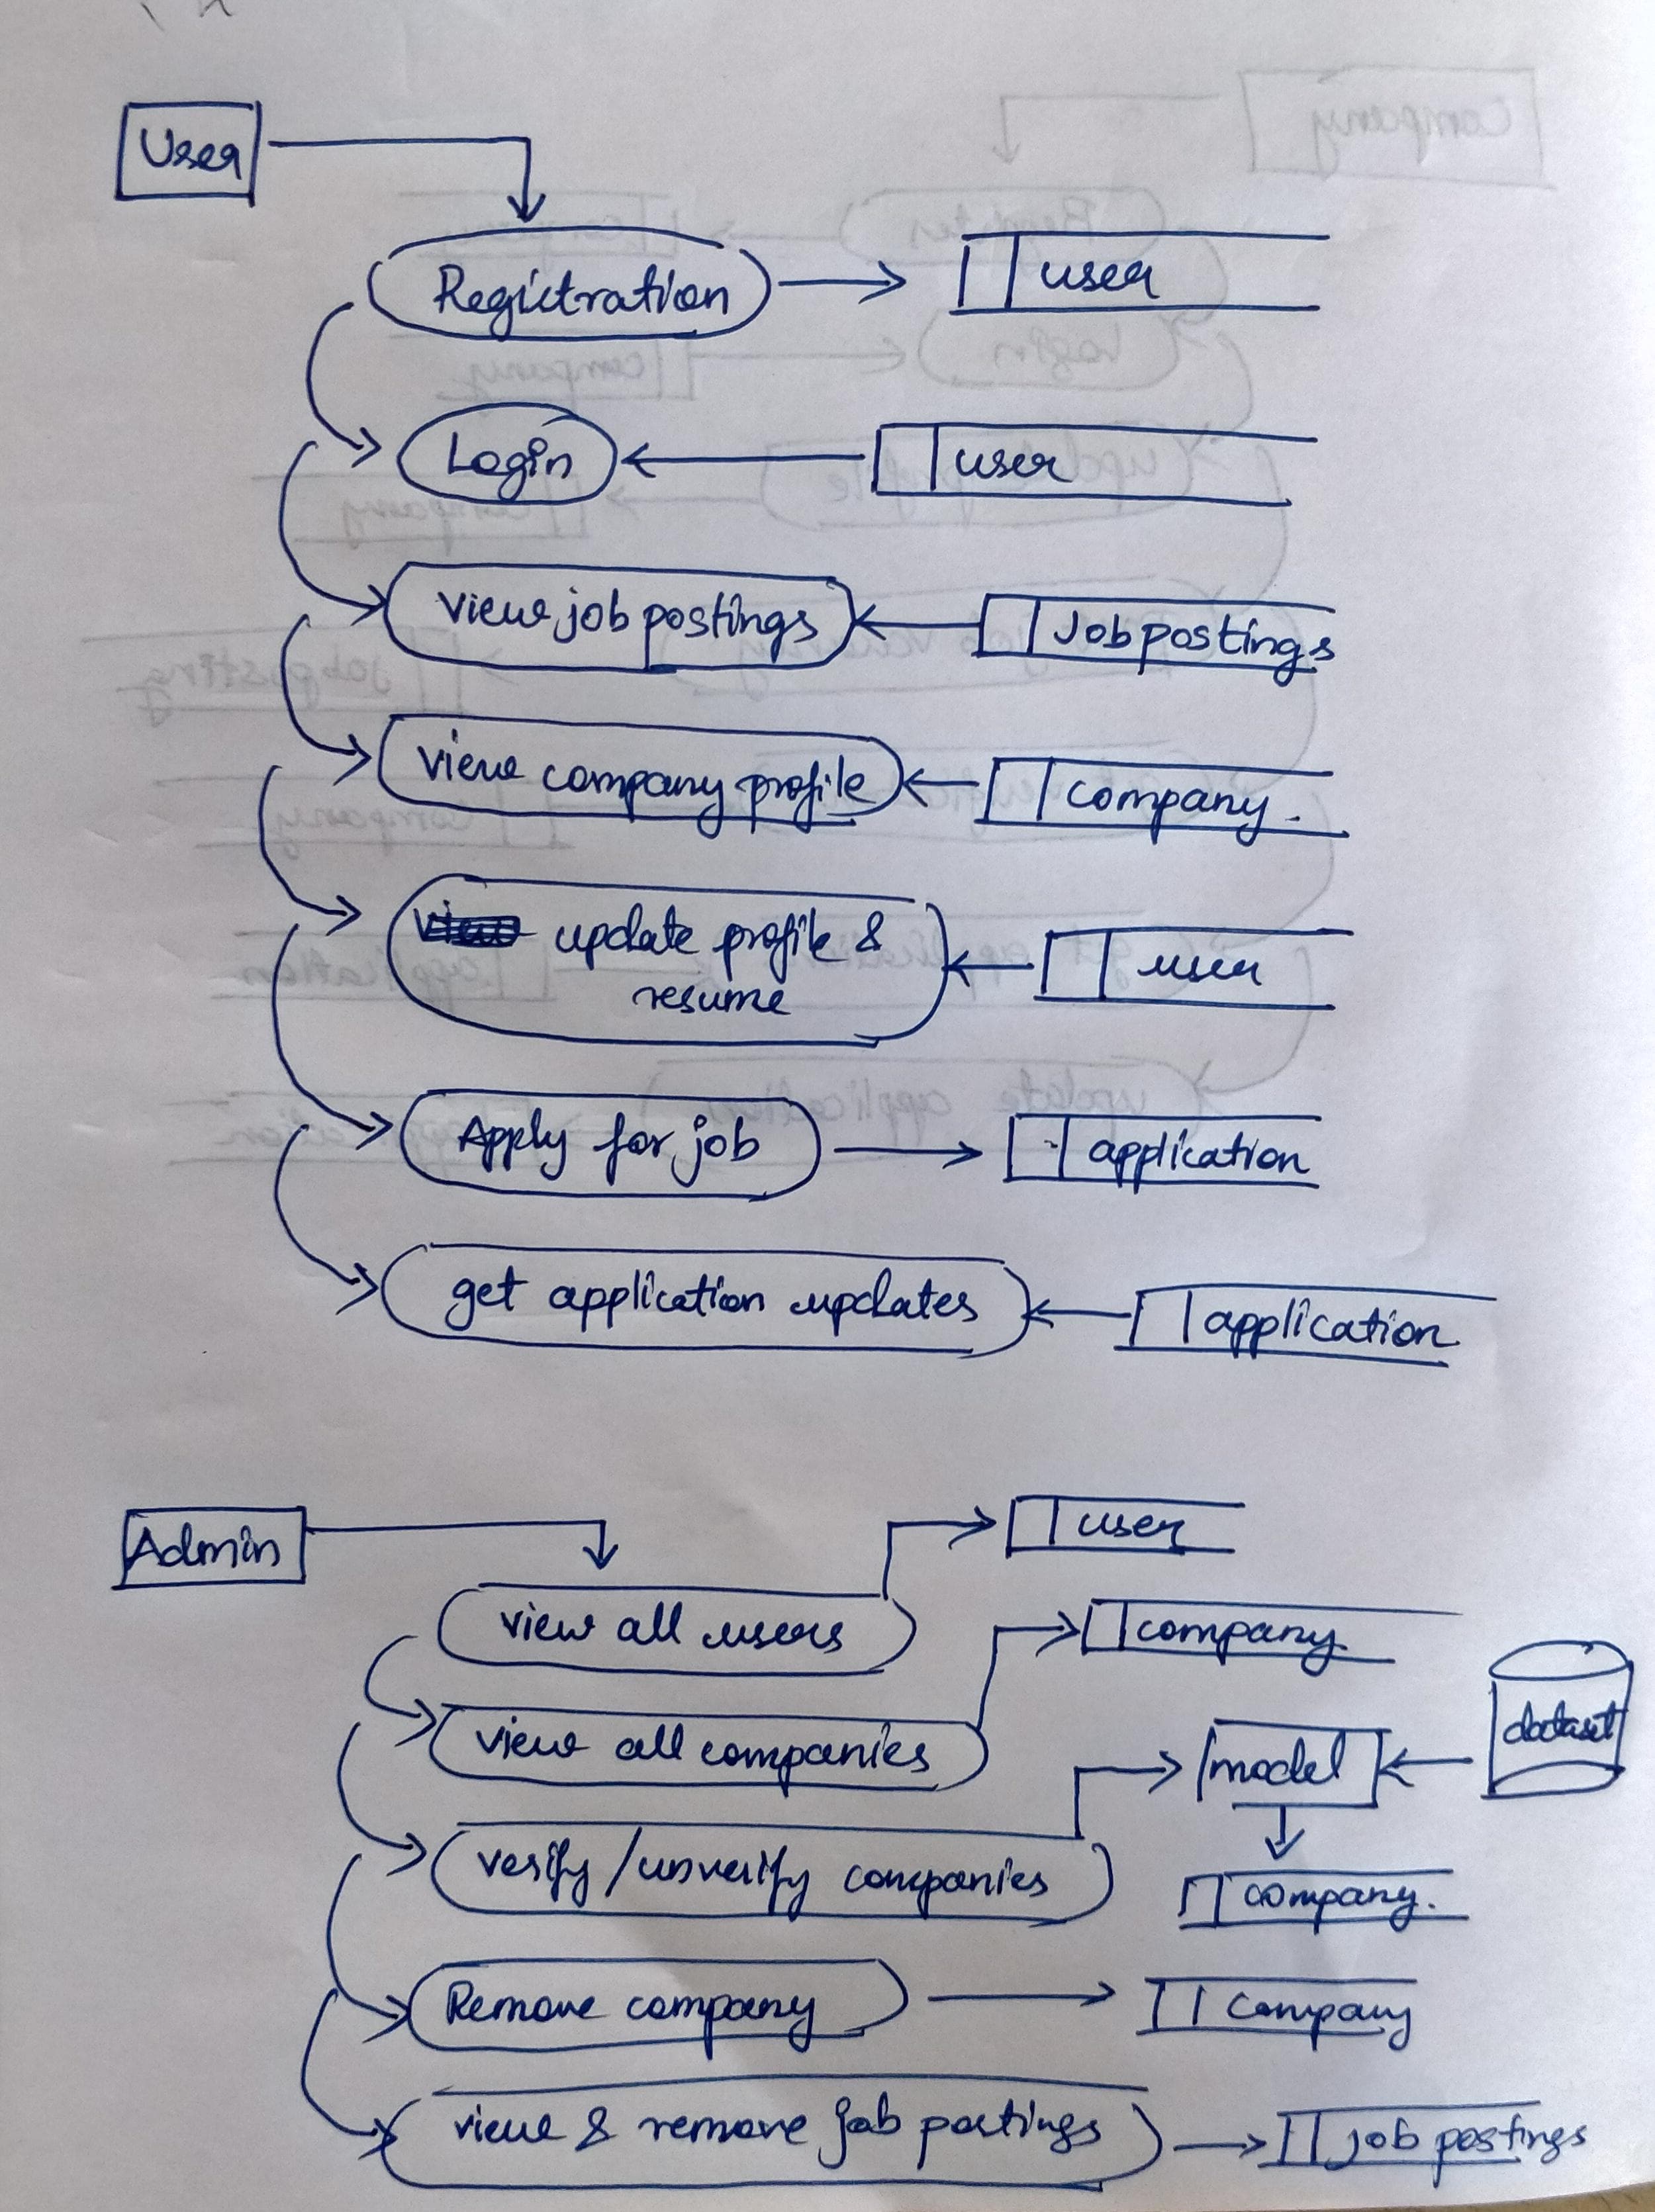 User
Registration
user
Login
user
view job postings
Job postings
view company profile
company.
update profile &
resume
user
Apply for job
application
get application updates
application
Admin
user
view all users
company
view all companies
dataset
model
verify/unverify companies
company.
Remove company
Company
view & remove job postings
job postings